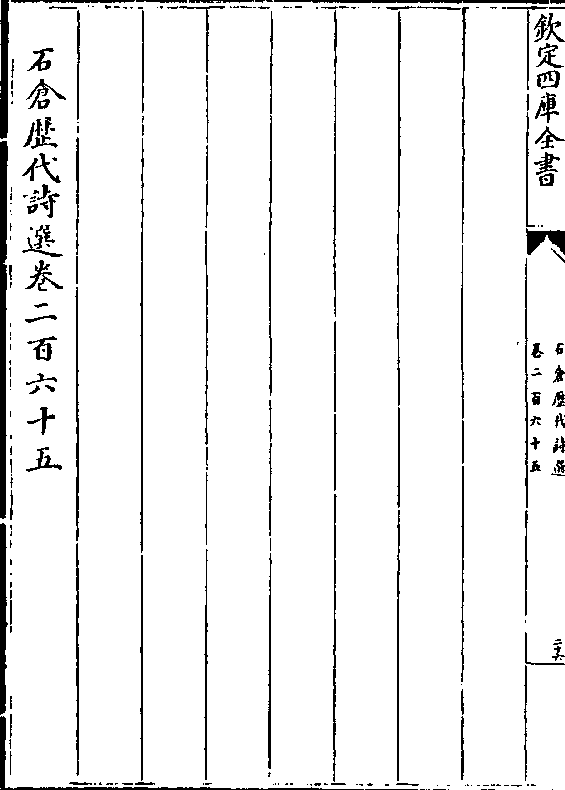 欽定四庫全書
石倉歴代詩選
卷二百六十五
二六
石倉歴代詩選卷二百六十五